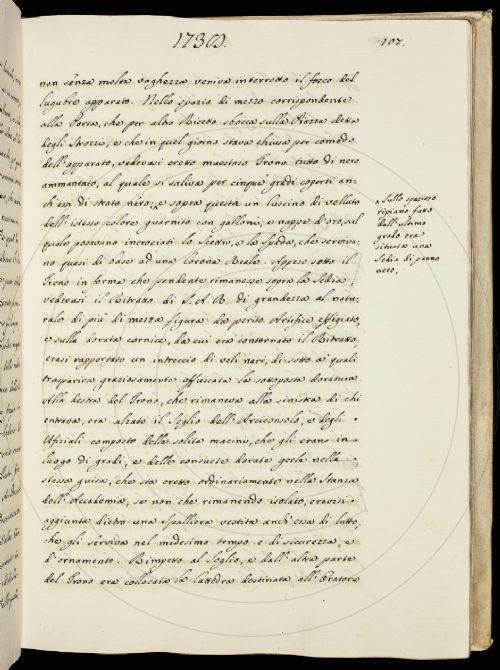 1738.
107.
non senza molta vaghezza veniva interrotto il fosco del
lugubre apparato. Nello spazio di mezzo corrispondente
alla Porta, che per altro Ricetto sbocca sulla Piazza detta
degli Strozzi, e che in quel giorno stava chiusa per comodo
dell'apparato, vedevasi eretto maestoso Trono tutto di nero
ammantato, al quale si saliva per cinque gradi coperti an-
ch'essi di strato nero; e sopra questa un Cuscino di velluto
dell'istesso colore guarnito con galloni, e nappe d'oro, sul
quale posavano incrociati lo Scettro, e la Spada, che serviva-
no quasi di base ad una Corona Reale. Appeso sotto il
Trono in forma che pendente rimanesse sopra la Sedia,
vedevasi il Ritratto di S. A. R. di grandezza al natu-
rale di più di mezza figura da perito Artefice effigiato,
e sulla dorata cornice, da cui era contornato il Ritratto,
erasi rapportato un intreccio di veli neri, di sotto a' quali
traspariva graziosamente offuscata la sottoposta doratura.
Alla destra del Trono, che rimaneva alla sinistra di chi
entrava, era alzato il Soglio dell'Arciconsolo, e degli
Ufiziali composto delle solite macini, che gli erano in
luogo di gradi, e delle consuete dorate gerle nella
stessa guisa, che sta eretto ordinariamente nella Stanza
dell'Accademia, se non che rimanendo isolato, eravisi
aggiunta dietro una Spalliera vestita anch'essa di lutto,
che gli serviva nel medesimo tempo e di sicurezza, e
d'ornamento. Rimpetto al Soglio, e dall'altra parte
del Trono era collocata la Cattedra destinata all'Oratore
Sullo spazioso
ripiano fatto
dall'ultimo
grado era
situata una
Sedia di panno
nero,